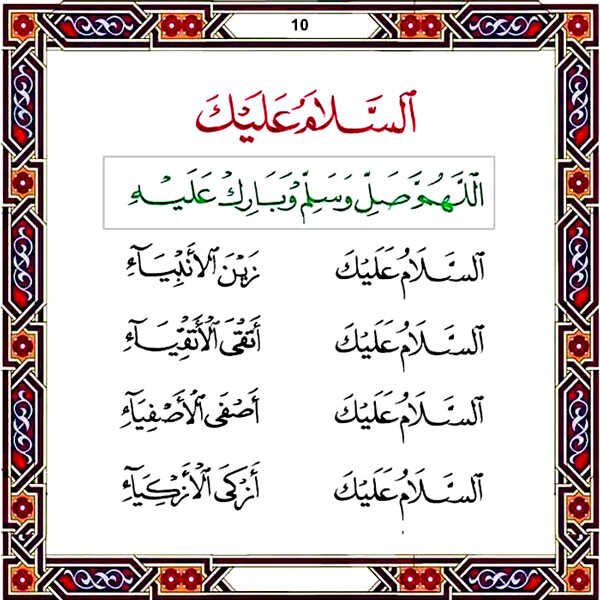 10
اَلسَّلَامُ عَلَيْكَ
اَللَّهُمَّ صَلِّ وَسَلِّمْ وَبَارِكْ عَلَيْهِ
اَلسَّلَامُ عَلَيْكَ زَيْنَ الْأَنْبِيَآءِ
اَلسَّلَامُ عَلَيْكَ أَتْقَى الْأَتْقِيَآءِ
اَلسَّلَامُ عَلَيْكَ أَصْفَى الْأَصْفِيَآءِ
اَلسَّلَامُ عَلَيْكَ أَزْكَى الْأَزْكِيَآءِ